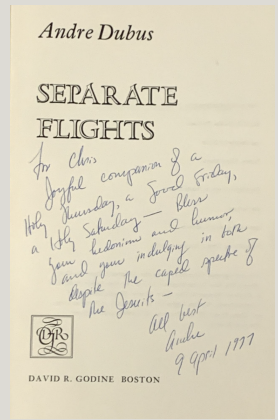 Andre Dubus
SEPARATE
FLIGHTS
for Chris
Joyful companion of a
Holy Thursday, a Good Friday,
a Holy Saturday — Bless
your hedonism and humor,
and your indulging in both
despite the caped spectre of
the Jesuits —
All best
Andre
9 April 1977
DAVID R. GODINE BOSTON